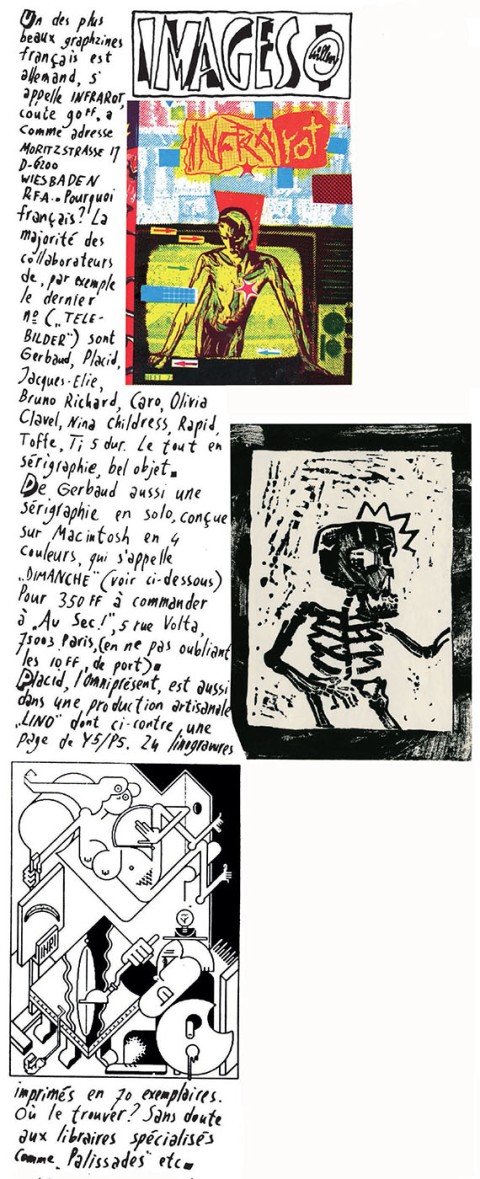 IMAGES
Willem
Un des plus
beaux graphzines
français est
allemand, s'
appelle INFRAROT,
coute 90FF, a
comme adresse
MORITZSTRASSE 17
D-6200
WIESBADEN
RFA.. Pourquoi
français? La
majorité des
collaborateurs
de, par exemple
le dernier
nº („TELE-
BILDER") sont
Gerbaud, Placid,
Jacques-Elie,
Bruno Richard, Caro, Olivia
Clavel, Nina Childress, Rapid,
Toffe, Ti 5 dur. Le tout en
sérigraphie, bel objet.
De Gerbaud aussi une
sérigraphie en solo, conçue
sur Macintosh en 4
couleurs, qui s'appelle
„DIMANCHE" (voir ci-dessous)
Pour 350 FF à commander
à „Au Sec!", 5 rue Volta,
75003 Paris, (en ne pas oubliant
les 10FF, de port).
Placid, l'omniprésent, est aussi
dans une production artisanale
„LINO" dont ci-contre, une
page de Y5/P5. 24 linogravures
INFRAROT
INRI
imprimés en 70 exemplaires.
Où le trouver? Sans doute
aux libraires spécialisés
comme „Palissades" etc.